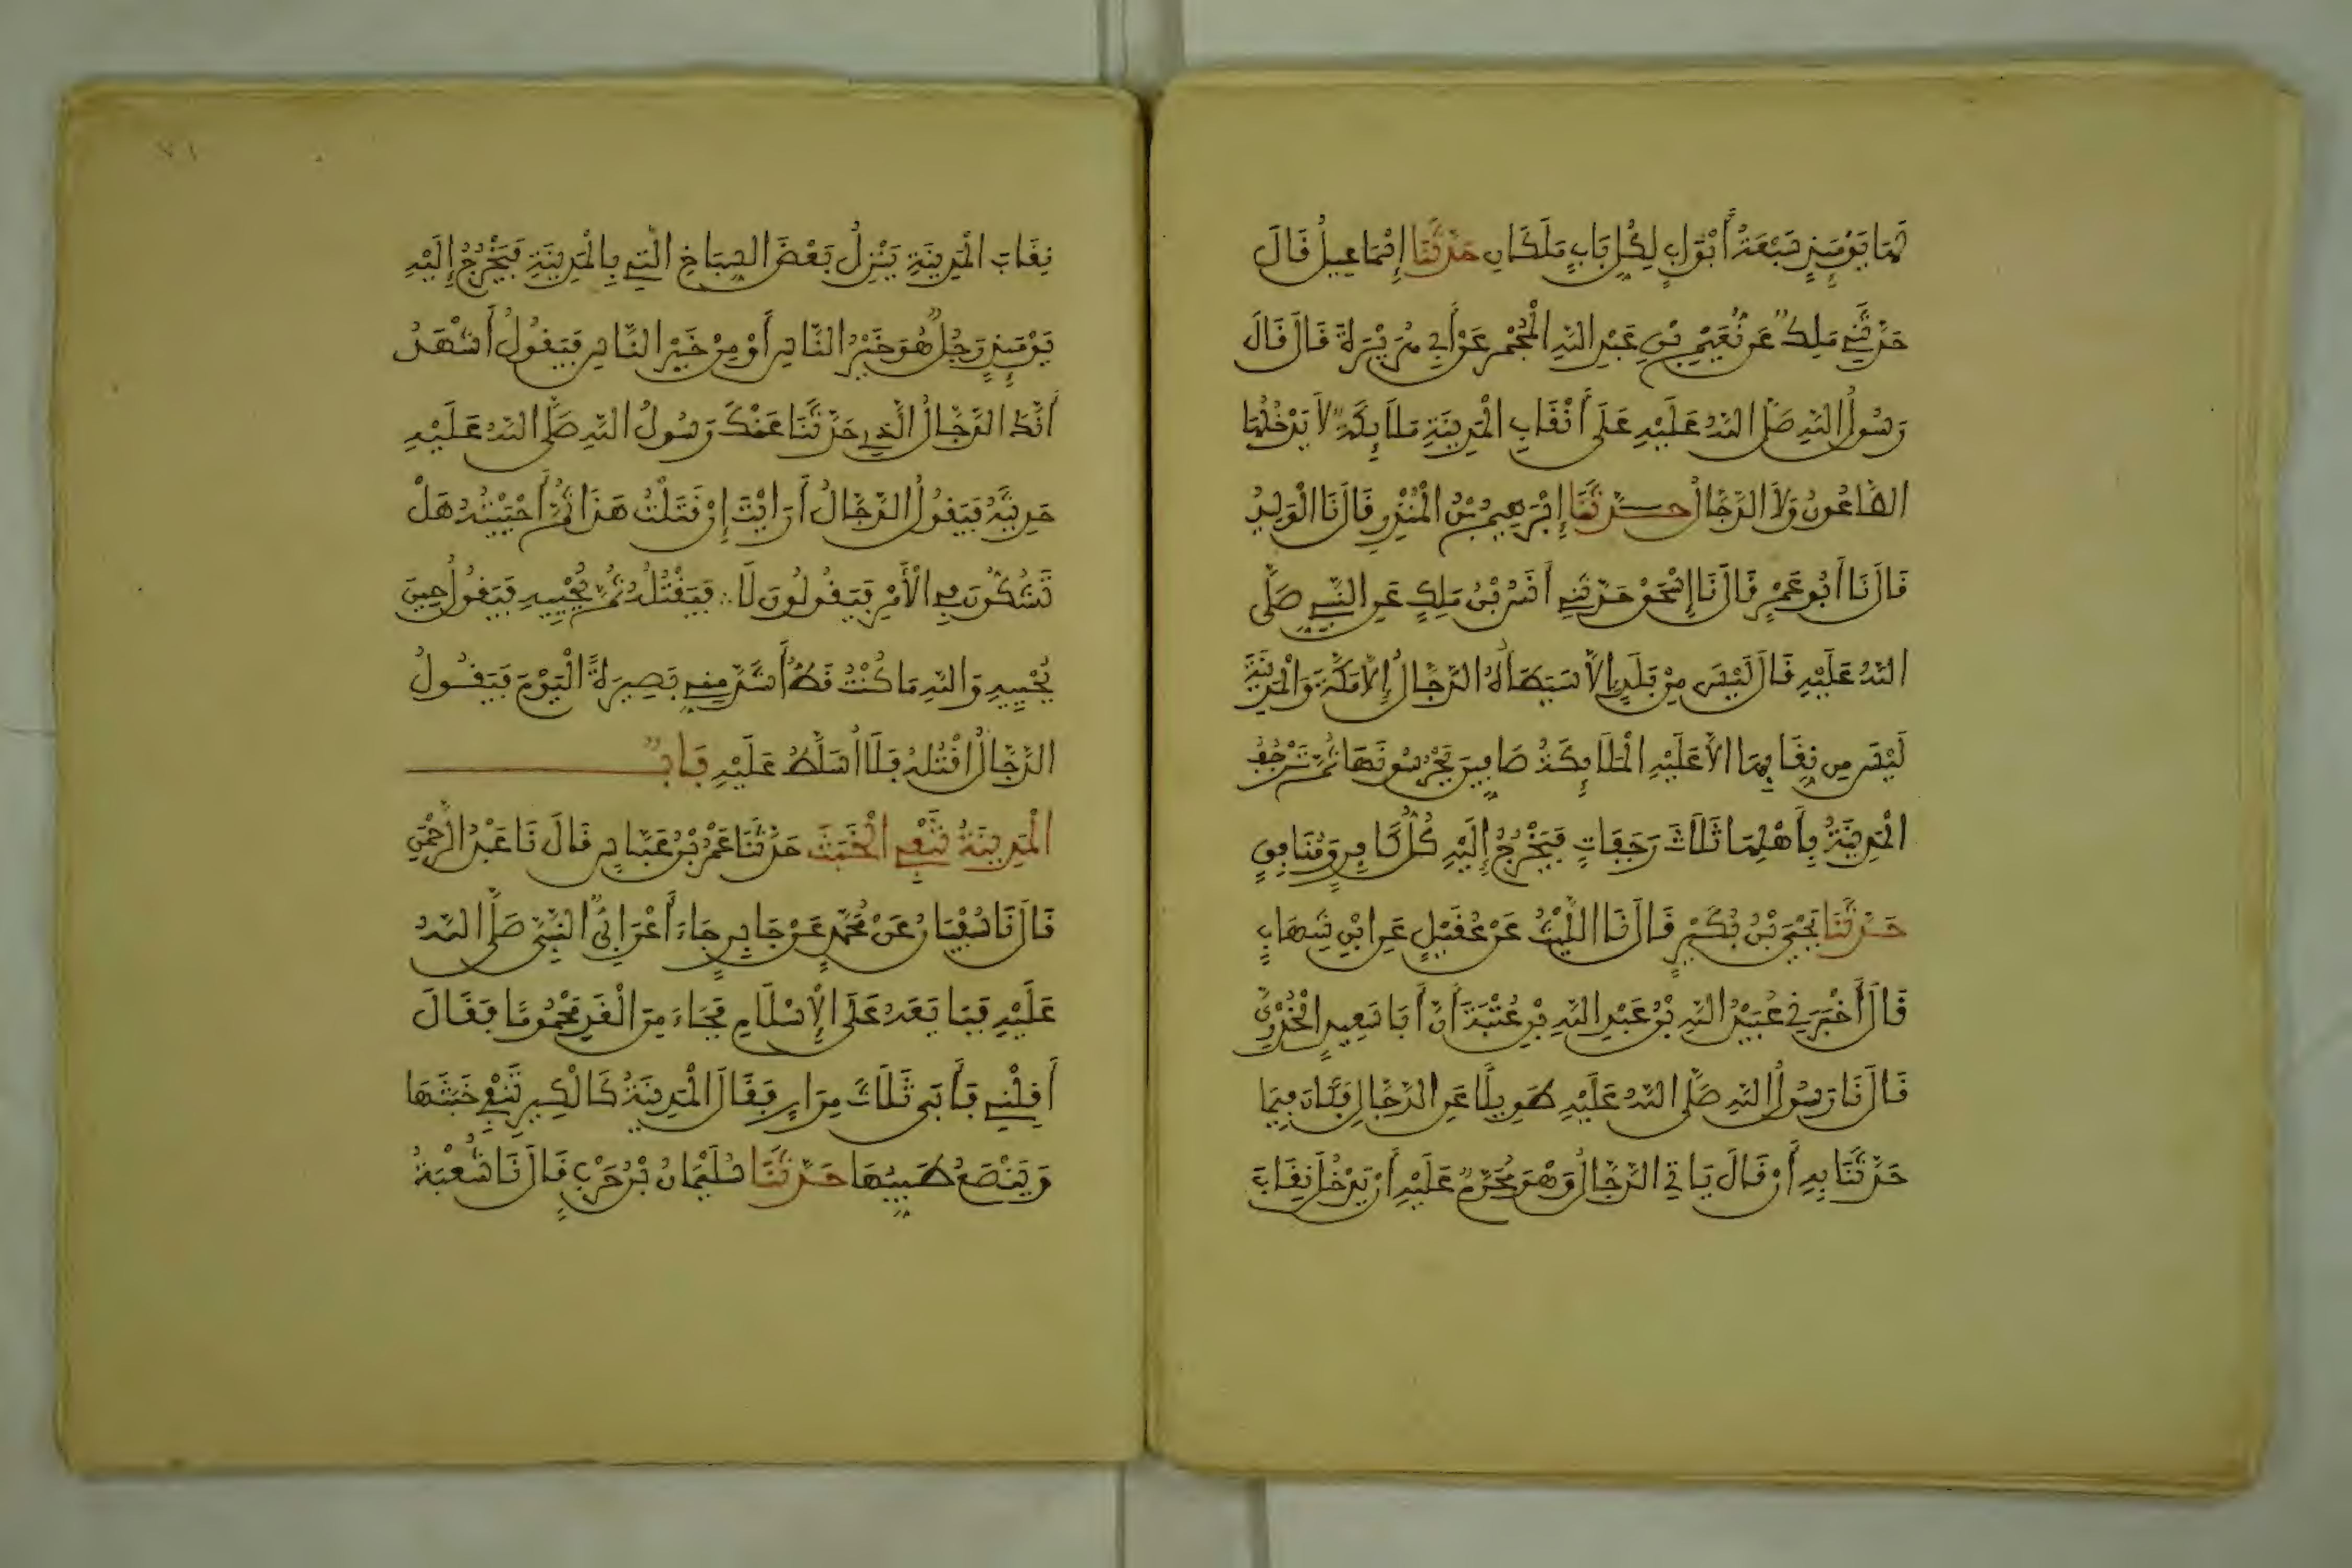 لَهَا يَوْمَئِذٍ سَبْعَةُ أَبْوَابٍ لِكُلِّ بَابٍ مَلَكَانِ حَدَّثَنَا إِسْمَاعِيلُ قَالَ
حَدَّثَنِي مَلِكٌ عَن نُّعَيْمِ بْنِ عَبْدِ اللَّهِ الْمُجْمِرِ عَنْ أَبِي هُرَيْرَةَ قَالَ قَالَ
رَسُولُ اللَّهِ صَلَّى اللَّهُ عَلَيْهِ عَلَى أَنْقَابِ الْمَدِينَةِ مَلَائِكَةٌ لَا يَدْخُلُهَا
الطَّاعُونُ وَلَا الدَّجَّالُ حَدَّثَنَا إِبْرَهِيمُ بْنُ الْمُنْذِرِ قَالَ نَا الْوَلِيدُ
قَالَ نَا أَبُو عَمْرٍ قَالَ نَا إِسْحَقُ حَدَّثَنِي أَنَسُ بْنُ مَلِكٍ عَنِ النَّبِيِّ صَلَّى
اللَّهُ عَلَيْهِ قَالَ لَيْسَ مِنْ بَلَدٍ إِلَّا سَيَطَأُهُ الدَّجَّالُ إِلَّا مَكَّةَ وَالْمَدِينَةَ
لَيْسَ مِن نِقَابِهَا إِلَّا عَلَيْهِ الْمَلَائِكَةُ صَافِّينَ يَحْرُسُونَهَا ثُمَّ تَرْجُفُ
الْمَدِينَةُ بِأَهْلِهَا ثَلَاثَ رَجَفَاتٍ فَيَخْرُجُ إِلَيْهِ كُلُّ كَافِرٍ وَمُنَافِقٍ
حَدَّثَنَا يَحْيَى بْنُ بُكَيْرٍ قَالَ نَا اللَّيْثُ عَنْ عُقَيْلٍ عَنِ ابْنِ شِهَابٍ
قَالَ أَخْبَرَنِي عُبَيْدُ اللَّهِ بْنُ عَبْدِ اللَّهِ بْنِ عُتْبَةَ أَنَّ أَبَا سَعِيدٍ الْخُدْرِيَّ
قَالَ نَا رَسُولُ اللَّهِ صَلَّى اللَّهُ عَلَيْهِ طَوِيلًا عَنِ الدَّجَّالِ فَكَانَ فِيمَا
حَدَّثَنَا بِهِ أَنْ قَالَ يَاتِي الدَّجَّالُ وَهْوَ مُحَرَّمٌ عَلَيْهِ أَنْ يَدْخُلَ نِقَابَ
٧١
نِقَابَ الْمَدِينَةِ يَنْزِلُ بَعْضَ السِّبَاخِ الَّتِي بِالْمَدِينَةِ فَيَخْرُجُ إِلَيْهِ
يَوْمَئِذٍ رَجُلٌ هُوَ خَيْرُ النَّاسِ أَوْ مِنْ خَيْرِ النَّاسِ فَيَقُولُ أَشْهَدُ
أَنَّكَ الدَّجَّالُ الَّذِي حَدَّثَنَا عَنْكَ رَسُولُ اللَّهِ صَلَّى اللَّهُ عَلَيْهِ
حَدِيثَهُ فَيَقُولُ الدَّجَّالُ أَرَايْتَ إِنْ قَتَلْتُ هَذَا ثُمَّ أَحْيَيْتُهُ هَلْ
تَشُكُّونَ فِي الْأَمْرِ فَيَقُولُونَ لَا فَيَقْتُلُهُ ثُمَّ يُحْيِيهِ فَيَقُولُ حِينَ
يُحْيِيهِ وَاللَّهِ مَا كُنْتُ قَطُّ أَشَدَّ مِنِّي بَصِيرَةً الْيَوْمَ فَيَقُولُ
الدَّجَّالُ اقْتُلُهُ فَلَا أُسَلَّطُ عَلَيْهِ بَابٌ
الْمَدِينَةُ تَنْفِي الْخَبَثَ حَدَّثَنَا عَمْرُ بْنُ عَبَّاسٍ قَالَ نَا عَبْدُ الرَّحْمَنِ
قَالَ نَا سُفْيَانُ عَنْ مُحَمَّدٍ عَنْ جَابِرٍ جَاءَ أَعْرَابِيٌّ النَّبِيَّ صَلَّى اللَّهُ
عَلَيْهِ فَبَايَعَهُ عَلَى الْإِسْلَامِ فَجَاءَ مِنَ الْغَدِ مَحْمُومًا فَقَالَ
أَقِلْنِي فَأَبَى ثَلَاثَ مِرَارٍ فَقَالَ الْمَدِينَةُ كَالْكِيرِ تَنْفِي خَبَثَهَا
وَيَنْصَعُ طَيِّبُهَا حَدَّثَنَا سُلَيْمَانُ بْنُ حَرْبٍ قَالَ نَا شُعْبَةُ